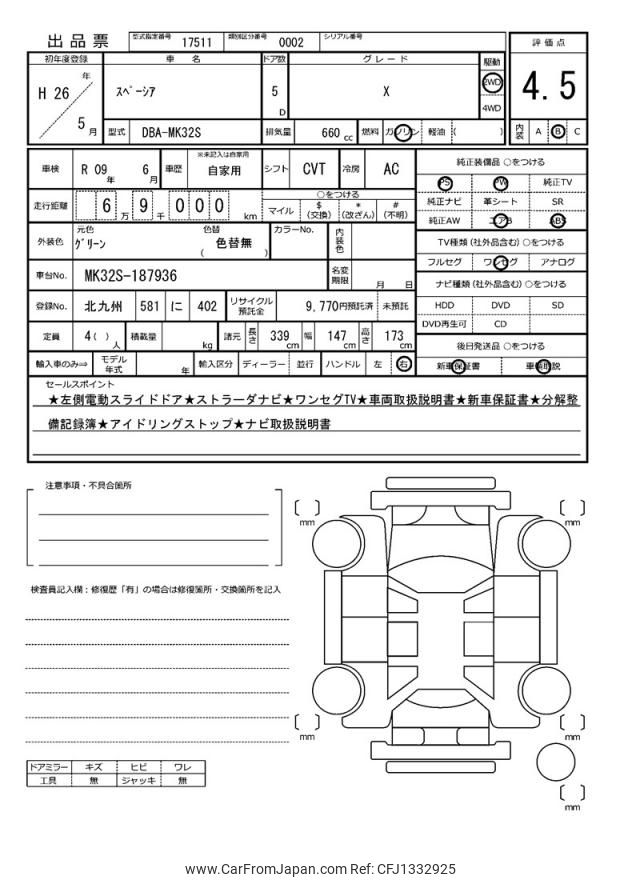 出品票 型式指定番号 17511 類別区分番号 0002 シリアル番号
初年度登録 車名 ドア数 グレード 駆動 評価点
H 26 年 5 月 スペーシア 5 D X 2WD 4WD 4.5
型式 DBA-MK32S 排気量 660 cc 燃料 ガソリン 軽油 ( ) 内装 A B C
車検 R 09 年 6 月 車歴 ※未記入は自家用 自家用 シフト CVT 冷房 AC
走行距離 6 万 9 千 0 0 0 km ○をつける マイル $ (交換) * (改ざん) # (不明)
外装色 元色 グリーン 色替 色替無 ( ) カラーNo. 内装色
車台No. MK32S-187936 名変期限 月 日
登録No. 北九州 581 に 402 リサイクル預託金 9,770円預託済 未預託
定員 4 ( ) 人 積載量 kg 諸元 長さ 339 cm 幅 147 cm 高さ 173 cm
輸入車のみ⇒ モデル年式 年 輸入区分 ディーラー 並行 ハンドル 左 右
純正装備品 ○をつける
PS PW 純正TV
純正ナビ 革シート SR
純正AW エアB ABS
TV種類 (社外品含む) ○をつける
フルセグ ワンセグ アナログ
ナビ種類 (社外品含む) ○をつける
HDD DVD SD
DVD再生可 CD
後日発送品 ○をつける
新車保証書 車輌取説
セールスポイント
★左側電動スライドドア★ストラーダナビ★ワンセグTV★車両取扱説明書★新車保証書★分解整
備記録簿★アイドリングストップ★ナビ取扱説明書
注意事項・不具合箇所
検査員記入欄：修復歴「有」の場合は修復箇所・交換箇所を記入
ドアミラー キズ ヒビ ワレ
工具 無 ジャッキ 無
[ ] mm
[ ] mm
[ ] mm
[ ] mm
[ ] mm
www.CarFromJapan.com Ref: CFJ1332925